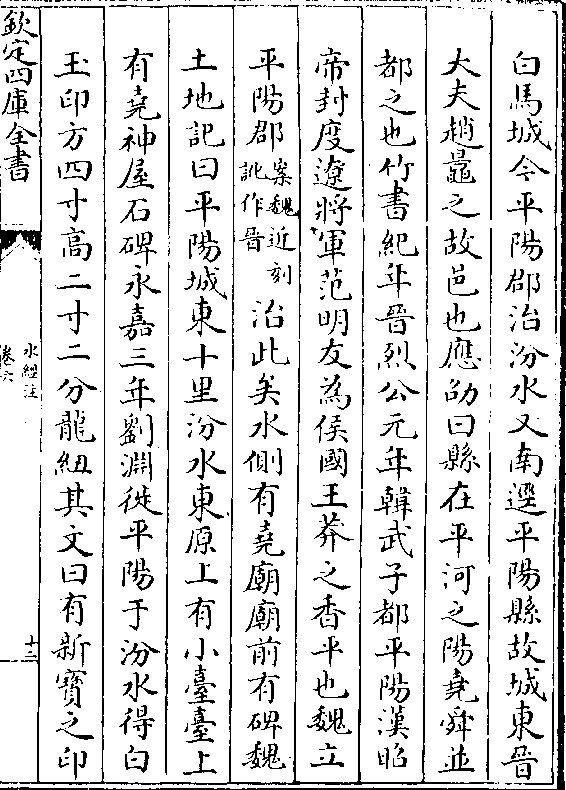 白馬城今平陽郡治汾水又南逕平陽縣故城東晉
大夫趙鼂之故邑也應劭曰縣在平河之陽堯舜並
都之也竹書紀年晉烈公元年韓武子都平陽漢昭
帝封度遼將軍范明友為侯國王莽之香平也魏立
平陽郡案魏近刻訛作晉治此矣水側有堯廟廟前有碑魏
土地記曰平陽城東十里汾水東原上有小臺臺上
有堯神屋石碑永嘉三年劉淵徙平陽于汾水得白
玉印方四寸高二寸二分龍紐其文曰有新寶之印
欽定四庫全書
水經注
卷六
十二